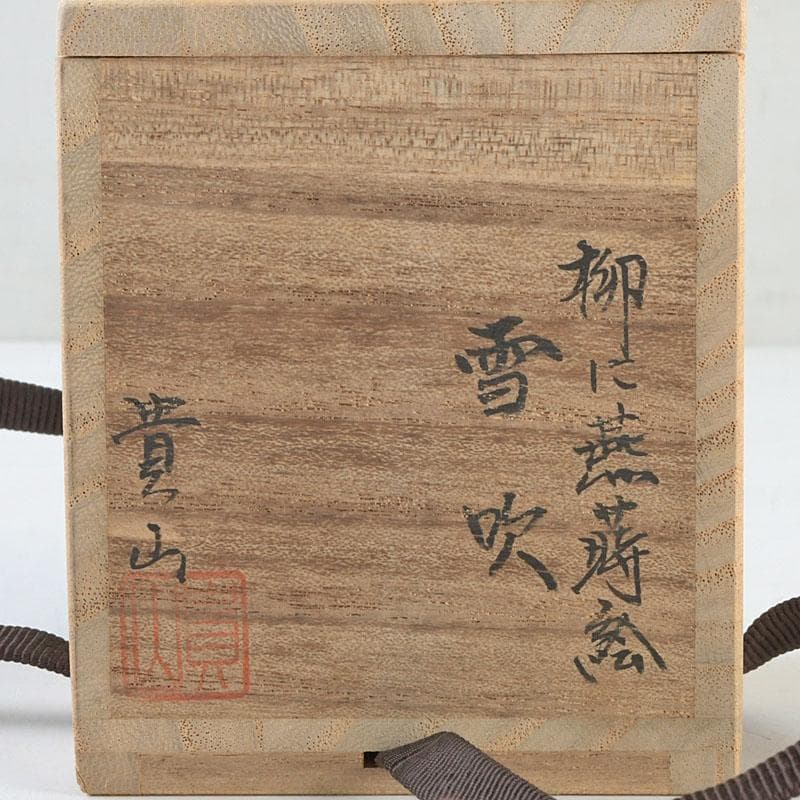 柳に燕蒔絵
雪吹
貴山